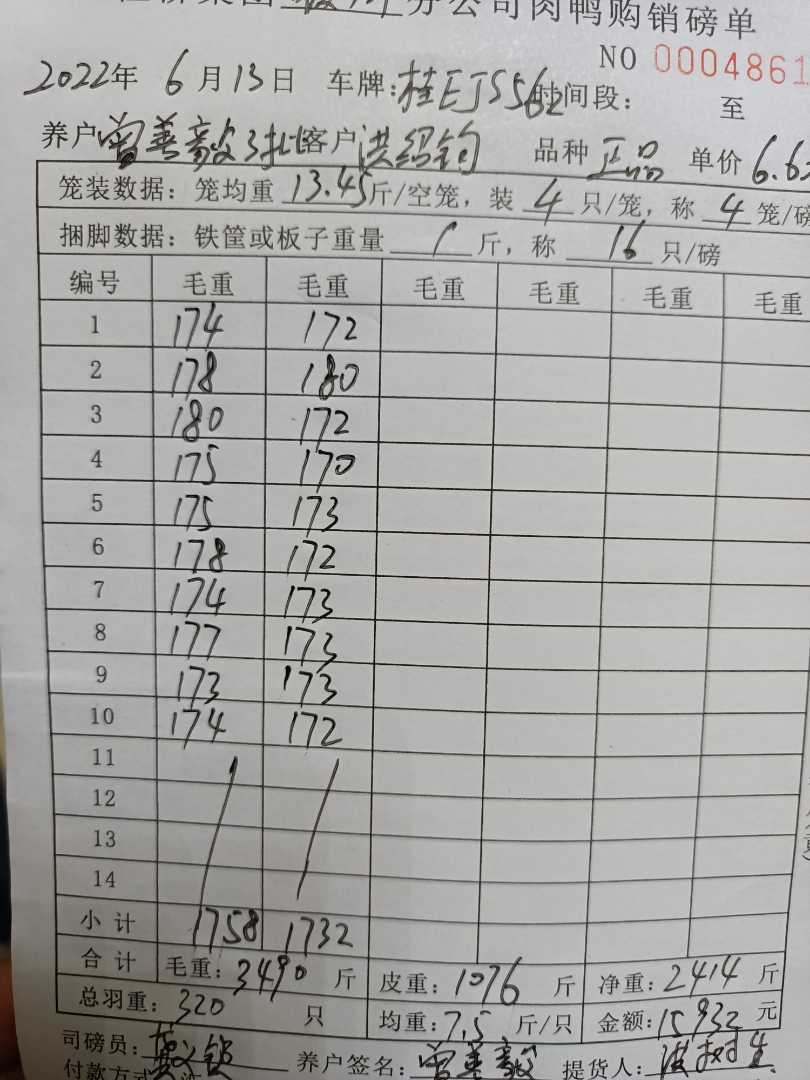 分公司肉鸭购销磅单
NO 0004861
2022年 6月13日 车牌:桂EJS562 时间段: 至
养户 曾善毅3批 客户 洪绍钧 品种 正品 单价 6.6
笼装数据: 笼均重 13.45斤/空笼, 装 4 只/笼, 称 4 笼/磅
捆脚数据: 铁筐或板子重量 / 斤, 称 16 只/磅
编号 毛重 毛重 毛重 毛重 毛重 毛重
1 174 172
2 178 180
3 180 172
4 175 170
5 175 173
6 178 172
7 174 173
8 177 173
9 173 173
10 174 172
11
12
13
14
小计 1758 1732
合计 毛重: 3490 斤 皮重: 1076 斤 净重: 2414 斤
总羽重: 320 只 均重: 7.5 斤/只 金额: 15932 元
司磅员: 养户签名: 曾善毅 提货人:
付款方式